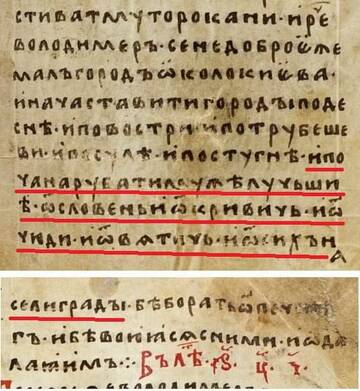 стиватмуторокани·ирⷱе
володимеръ·сенедоброѡже
малъгородъѡколокиѥва·
иначаставитигородыподе
снѣ·иповостри·ипотрубеше
ви·ипосулѣ·ипостугнѣ·ипо
чанарубатимужѣлучьши
ѣ·ѿсловеньиѿкривичь·иѿ
чюди·иѿвѧтичь·иѿсихън
а
селиграды·бѣборатьѿпеченѣ
гъ·ибѣвоюӕсѧсними·иѡда
лаӕимъ·:· Влѣⷮ·